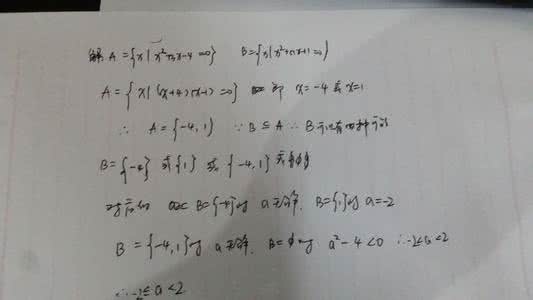 解 A={x|x²+3x-4=0} B={x|x²+ax+1=0}
A={x|(x+4)(x-1)=0} 即 x=-4或x=1
∴ A={-4,1} ∵B⊆A ∴B可以有四种可能
B={-4} 或{1} 或{-4,1}或
B={-4}时 a无解. B={1}时 a=-2
B={-4,1}时 a无解. B=φ时 a²-4<0 ∴-2≤a<2
∴-2≤a<2